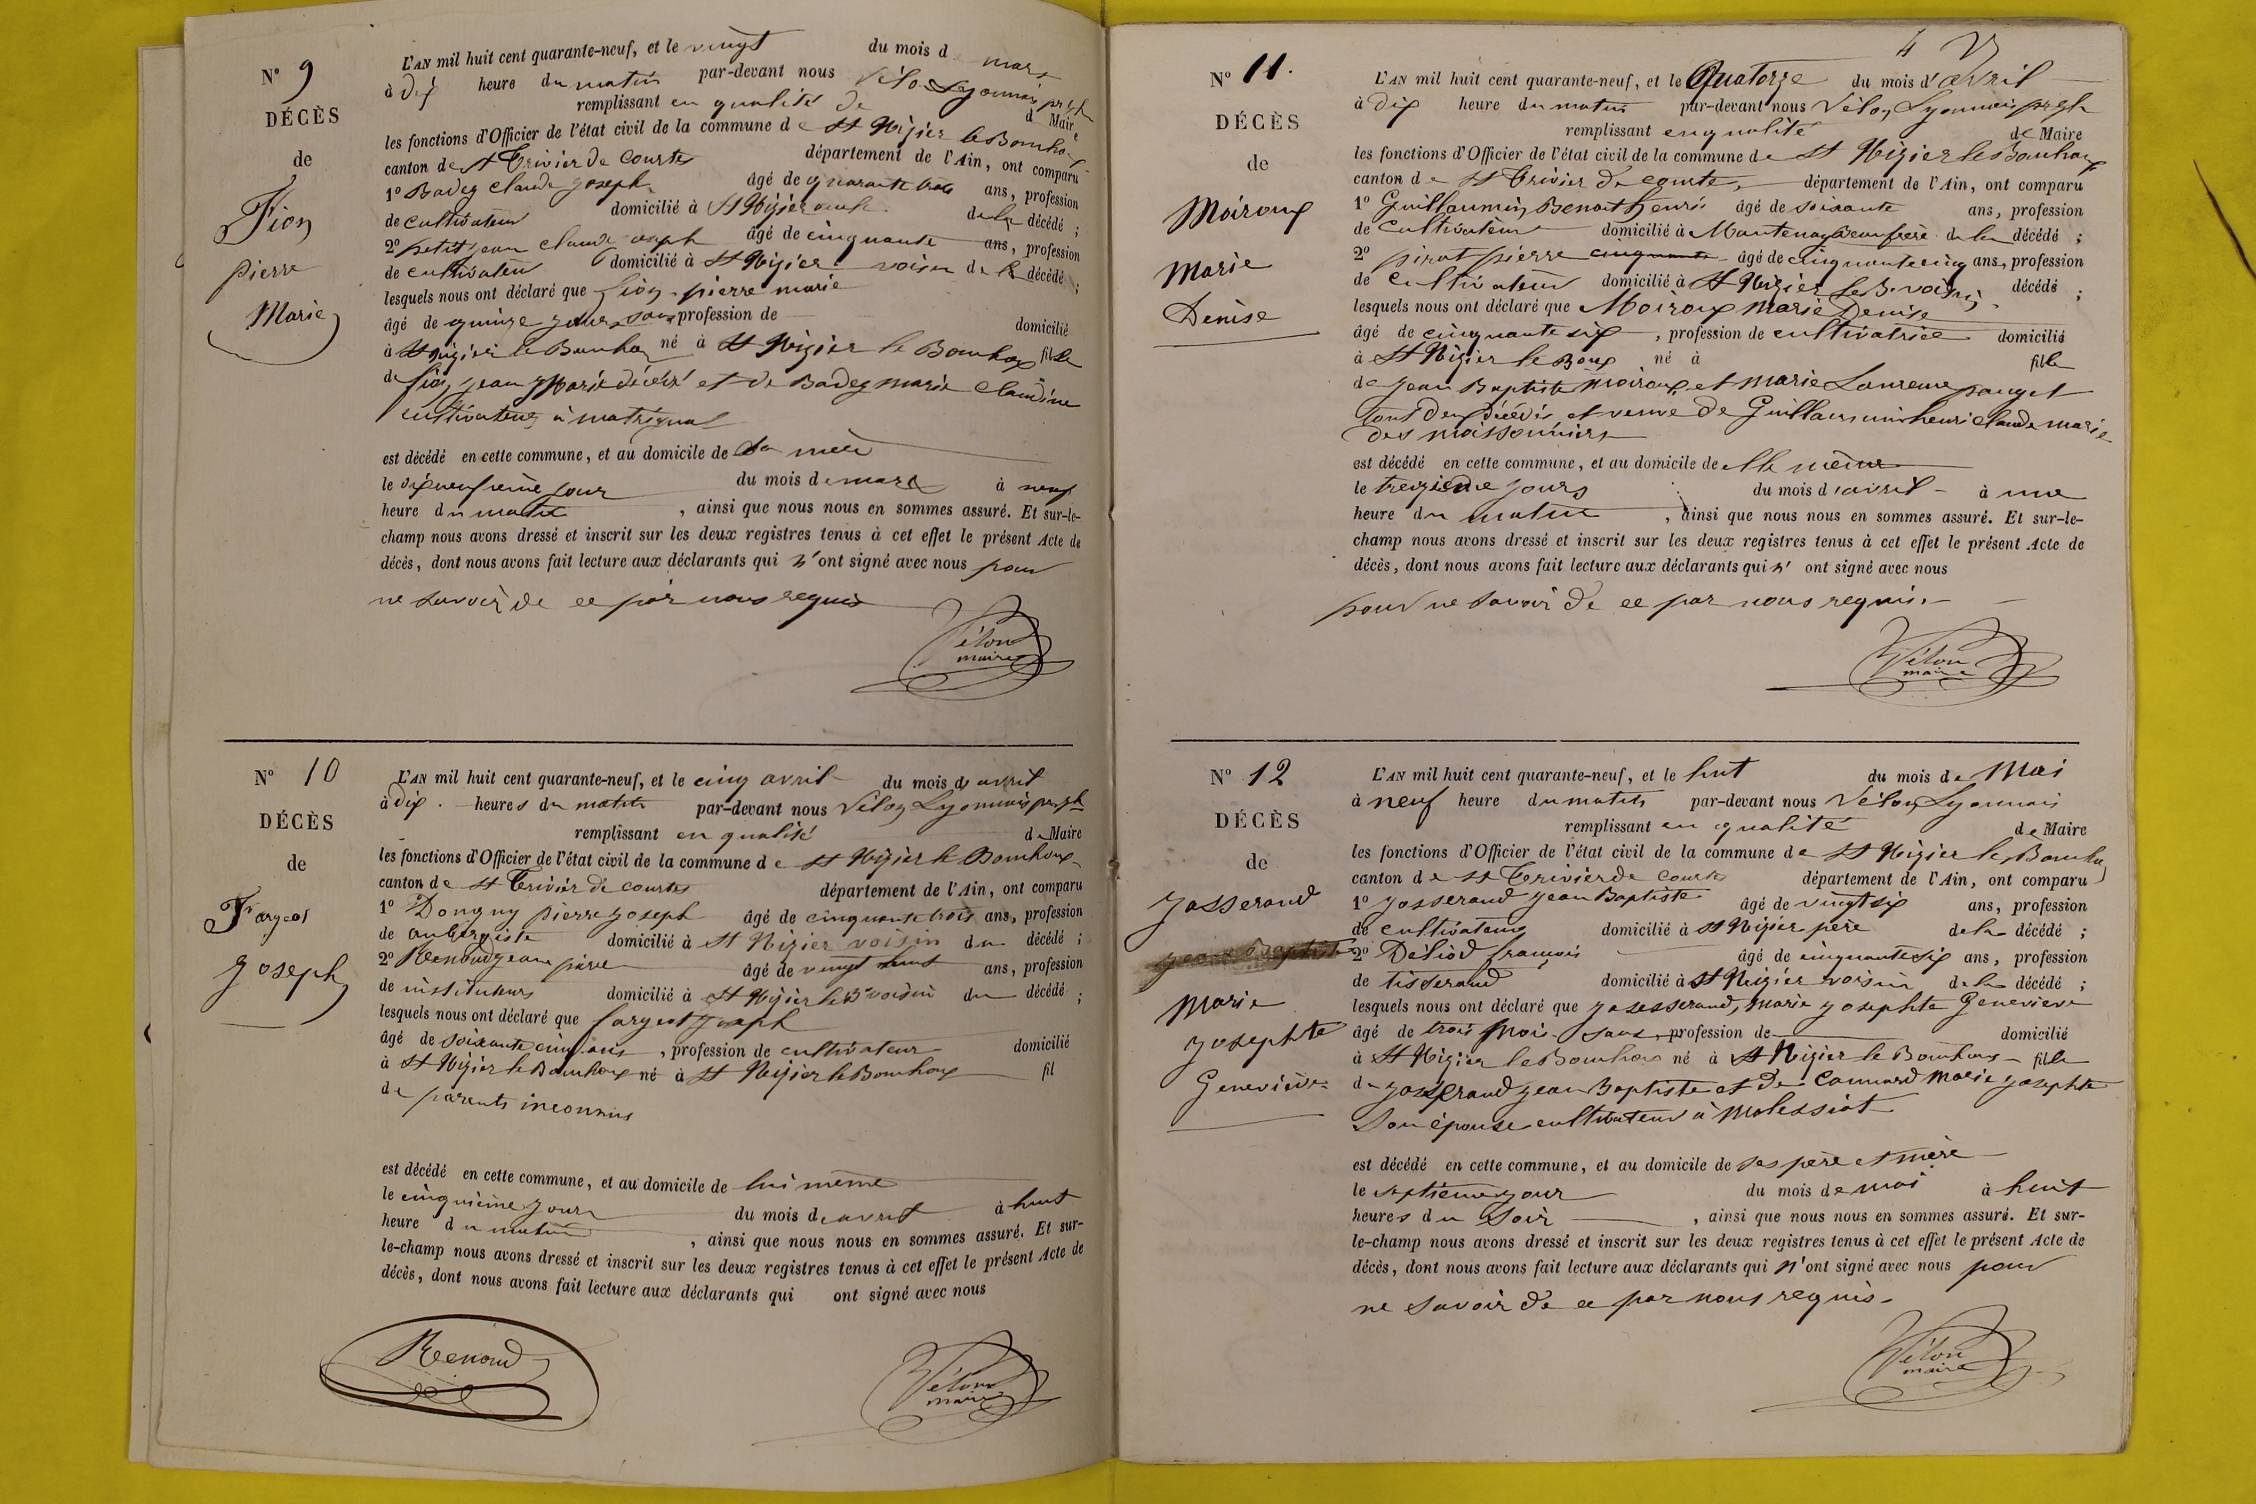 N° 9
DÉCÈS
de
Fion
pierre
Marie
L'AN mil huit cent quarante-neuf, et le vingt du mois d mars
à dix heure du matin par-devant nous Vélon Lyonnais
remplissant en qualité de d Maire
les fonctions d'Officier de l'état civil de la commune de St Nizier le Bouhoux
canton de St Trivier de Courtes département de l'Ain, ont comparu
1° Badey Claude joseph âgé de quarante trois ans, profession
de cultivateur domicilié à St Nizier de la décédé ;
2° petit jean Claude joseph âgé de cinquante ans, profession
de cultivateur domicilié à St Nizier voisin de la décédé ;
lesquels nous ont déclaré que fion pierre marie
âgé de quinze jours sans profession de domicilié
à St Nizier le Bouhoux né à St Nizier le Bouhoux fille
de fion jean Marie décédé et de Badey marie Claudine
cultivateur à
est décédé en cette commune, et au domicile de Sa mère
le dixneufvième jour du mois de mars à neuf
heure du matin , ainsi que nous nous en sommes assuré. Et sur-le-
champ nous avons dressé et inscrit sur les deux registres tenus à cet effet le présent Acte de
décès, dont nous avons fait lecture aux déclarants qui n'ont signé avec nous pour
ne savoir de ce par nous requis
Vélon
maire
N° 10
DÉCÈS
de
Fargeot
Joseph
L'AN mil huit cent quarante-neuf, et le cinq avril du mois d avril
à dix heures du matin par-devant nous Vélon Lyonnais
remplissant en qualité de Maire
les fonctions d'Officier de l'état civil de la commune de St Nizier le Bouhoux
canton de St Trivier de Courtes département de l'Ain, ont comparu
1° Donguy pierre joseph âgé de cinquante trois ans, profession
de aubergiste domicilié à St Nizier voisin du décédé ;
2° Renoud jean pierre âgé de vingt ans, profession
de instituteur domicilié à St Nizier le B voisin du décédé ;
lesquels nous ont déclaré que fargeot joseph
âgé de soixante cinq ans , profession de cultivateur domicilié
à St Nizier le Bouhoux né à St Nizier le Bouhoux fil
de parents inconnus
est décédé en cette commune, et au domicile de lui même
le cinquième jour du mois de avril à huit
heure du matin , ainsi que nous nous en sommes assuré. Et sur-
le-champ nous avons dressé et inscrit sur les deux registres tenus à cet effet le présent Acte de
décès, dont nous avons fait lecture aux déclarants qui ont signé avec nous
Renoud
Vélon
maire
4
N° 11.
DÉCÈS
de
Moiroux
Marie
Denise
L'AN mil huit cent quarante-neuf, et le Quatorze du mois d'avril
à dix heure du matin par-devant nous Vélon Lyonnais
remplissant en qualité de Maire
les fonctions d'Officier de l'état civil de la commune de St Nizier le Bouhoux
canton de St Trivier de Courtes, département de l'Ain, ont comparu
1° Guillaumin Benoit henri âgé de soixante ans, profession
de Cultivateur domicilié à Mantenay Beaufrère de la décédé ;
2° pirat pierre cinquante âgé de cinquante cinq ans, profession
de cultivateur domicilié à St Nizier le B. voisin décédé ;
lesquels nous ont déclaré que Moiroux Marie Denise
âgé de cinquante six , profession de cultivatrice domicilié
à St Nizier le Boux né à fille
de jean Baptiste moiroux et marie Laurence pauget
tous deux décédés et veuve de Guillaumin henri claude marie
des moissonniers
est décédé en cette commune, et au domicile de elle même
le treizième jours du mois d'avril à une
heure du matin , ainsi que nous nous en sommes assuré. Et sur-le-
champ nous avons dressé et inscrit sur les deux registres tenus à cet effet le présent Acte de
décès, dont nous avons fait lecture aux déclarants qui n' ont signé avec nous
pour ne savoir de ce par nous requis.
Vélon
maire
N° 12
DÉCÈS
de
Josserand
jean Baptiste
Marie
josephte
Geneviève
L'AN mil huit cent quarante-neuf, et le huit du mois de Mai
à neuf heure du matin par-devant nous Vélon Lyonnais
remplissant en qualité de Maire
les fonctions d'Officier de l'état civil de la commune de St Nizier le Bouhoux
canton de St Trivier de Courtes département de l'Ain, ont comparu
1° josserand jean Baptiste âgé de vingt six ans, profession
de cultivateur domicilié à St Nizier père de la décédé ;
2° Déliod françois âgé de cinquante six ans, profession
de tisserand domicilié à St Nizier voisin de la décédé ;
lesquels nous ont déclaré que josesserand, marie josephte Genevieve
âgé de trois mois. sans profession de domicilié
à St Nizier le Bouhoux né à St Nizier le Bouhoux fille
de josserand jean Baptiste et de Connard Marie josephte
Son épouse cultivateur à Molessiat
est décédé en cette commune, et au domicile de ses père et mère
le septième jour du mois de mai à huit
heures du Soir , ainsi que nous nous en sommes assuré. Et sur-
le-champ nous avons dressé et inscrit sur les deux registres tenus à cet effet le présent Acte de
décès, dont nous avons fait lecture aux déclarants qui n'ont signé avec nous pour
ne savoir de ce par nous requis.
Vélon
maire